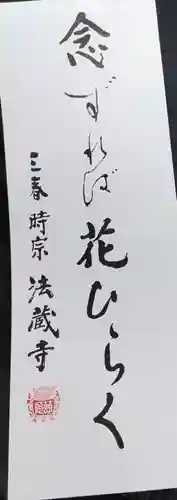 念ずれば花ひらく
三春 時宗 法蔵寺